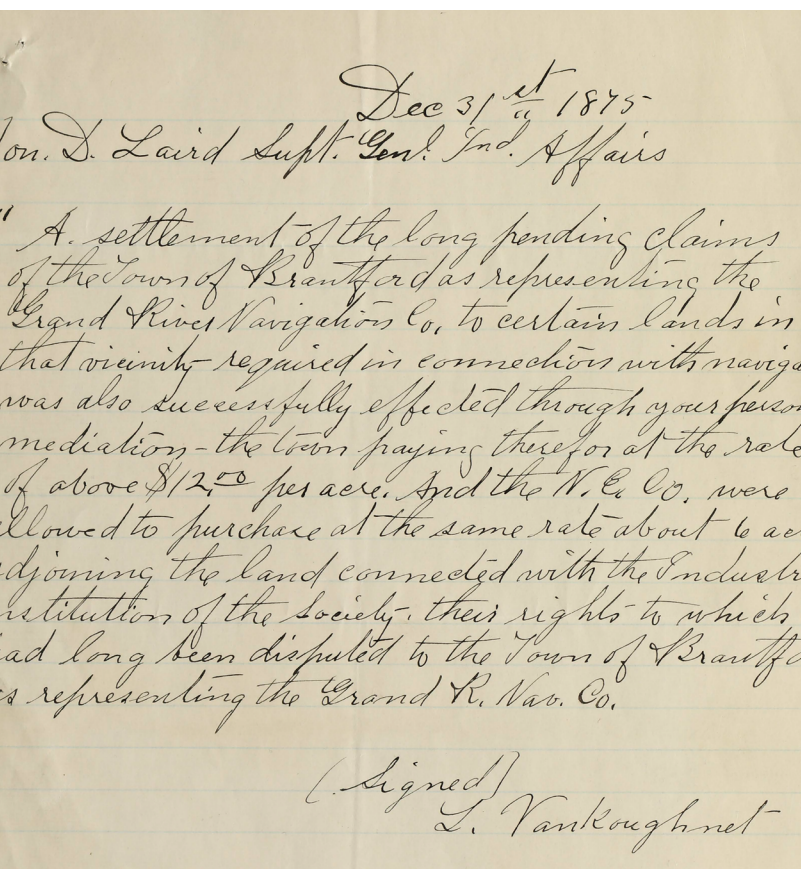 Dec 31st 1875
on. D. Laird Supt. Genl. Ind. Affairs
" A. settlement of the long pending claims
of the Town of Brantford as representing the
Grand River Navigation Co. to certain lands in
that vicinity required in connection with naviga
was also successfully effected through your person
mediation - the town paying therefor at the rate
of above $12.00 per acre. And the N. E. Co. were
llowed to purchase at the same rate about 6 ac
djoining the land connected with the Industr
nstitution of the Society. their rights to which
ad long been disputed to the Town of Brantfo
s representing the Grand R. Nav. Co.
(Signed)
L. Vankoughnet